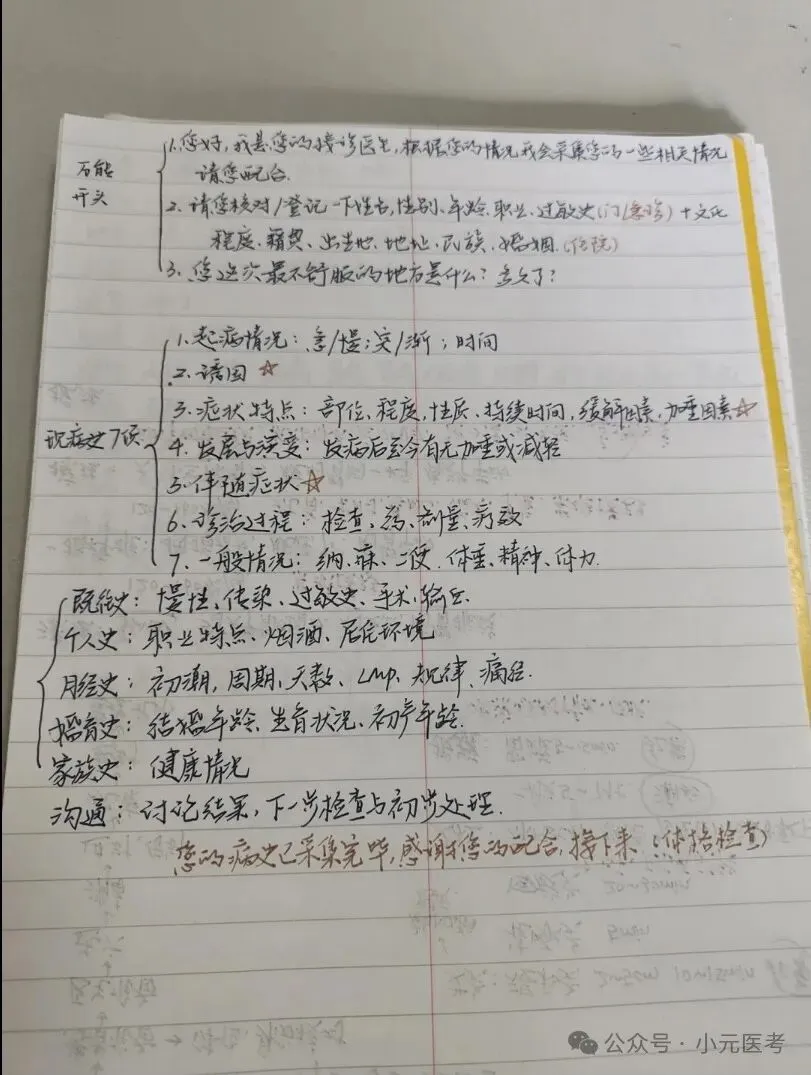 万能
开头
1.您好,我是您的接诊医生,根据您的情况我会采集您的一些相关情况
请您配合.
2. 请您核对/登记一下姓名,性别、年龄、职业、过敏史(门/急诊)+文化
程度、籍贯、出生地、地址、民族、婚姻.(住院)
3. 您这次最不舒服的地方是什么?多久了?
现病史7项
1.起病情况:急/慢;突/渐;时间
2.诱因☆
3.症状特点:部位、程度,性质、持续时间,缓解因素,加重因素☆
4.发展与演变:发病后至今有无加重或减轻
5.伴随症状☆
6.诊治过程:检查、药、剂量、疗效
7.一般情况:纳、寐、二便.体重、精神、体力.
既往史:慢性、传染、过敏史、手术、输血.
个人史:职业特点、烟酒、居住环境
月经史:初潮,周期、天数、LMP、规律、痛经.
婚育史:结婚年龄、生育状况、初产年龄.
家族史:健康情况
沟通:讨论结果,下一步检查与初步处理.
您的病史已采集完毕,感谢您的配合,接下来(体格检查)
公众号·小元医考